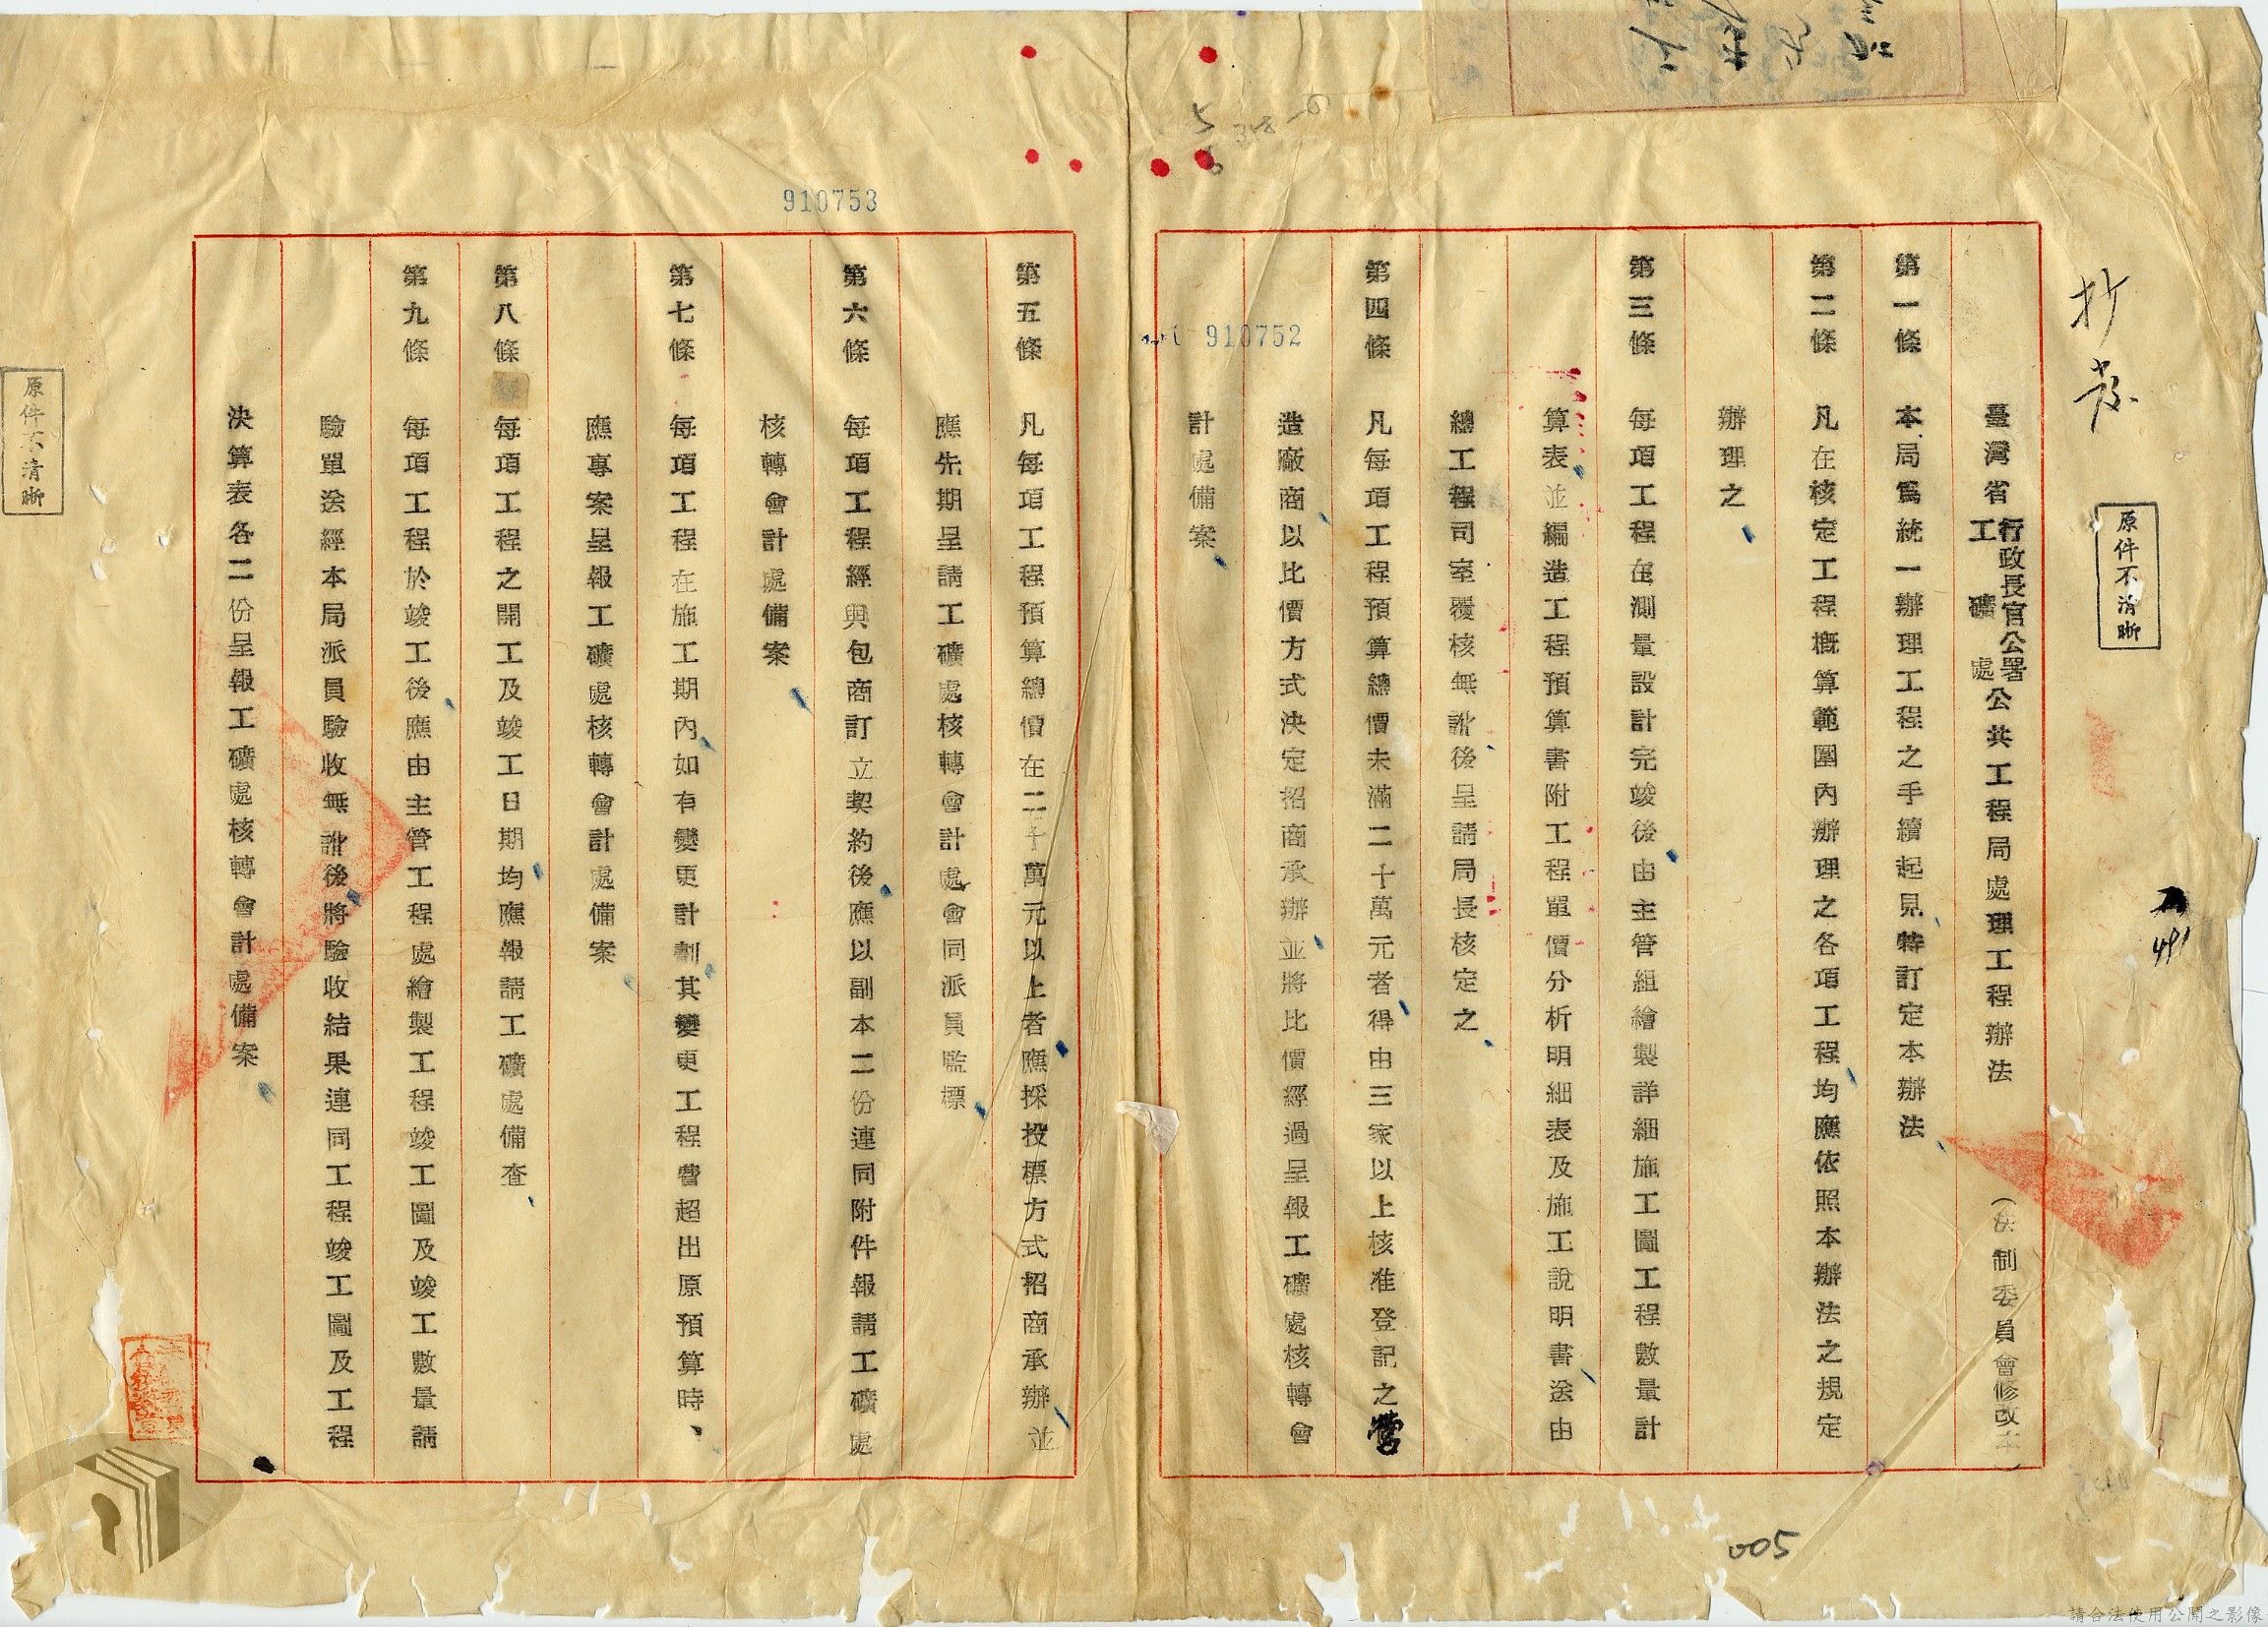 抄
原件不清晰
臺灣省行政長官公署工礦處公共工程局處理工程辦法 (法制委員會修改本)
第一條 本局爲統一辦理工程之手續起見特訂定本辦法
第二條 凡在核定工程概算範圍內辦理之各項工程均應依照本辦法之規定
辦理之
第三條 每項工程在測量設計完竣後由主管組繪製詳細施工圖工程數量計
算表並編造工程預算書附工程單價分析明細表及施工說明書送由
總工程司室覆核無訛後呈請局長核定之
第四條 凡每項工程預算總價未滿二十萬元者得由三家以上核准登記之營
造廠商以比價方式決定招商承辦並將比價經過呈報工礦處核轉會
計處備案
910752
005
910753
第五條 凡每項工程預算總價在二十萬元以上者應採投標方式招商承辦並
應先期呈請工礦處核轉會計處會同派員監標
第六條 每項工程經與包商訂立契約後應以副本二份連同附件報請工礦處
核轉會計處備案
第七條 每項工程在施工期內如有變更計劃其變更工程費超出原預算時、
應專案呈報工礦處核轉會計處備案
第八條 每項工程之開工及竣工日期均應報請工礦處備查
第九條 每項工程於竣工後應由主管工程處繪製工程竣工圖及竣工數量請
驗單送經本局派員驗收無訛後將驗收結果連同工程竣工圖及工程
決算表各二份呈報工礦處核轉會計處備案
原件不清晰
請合法使用公開之影像